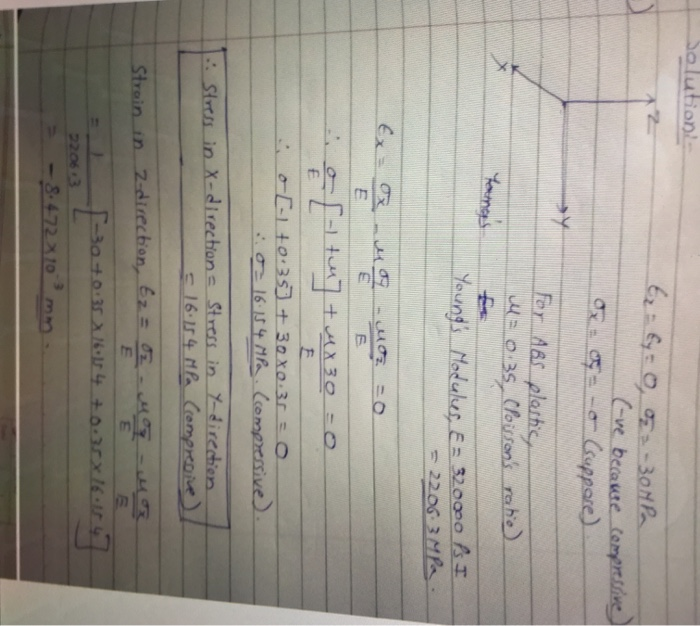 Solution:-
)
Z
Y
X
εx = εy = 0, σz = -30 MPa
(-ve because compressive)
σx = σy = -σ (suppose).
For ABS plastic,
μ = 0.35, (Poisson's ratio)
Young's Modulus, E = 320000 PsI
= 2206.3 MPa.
εx = σx/E - μσy/E - μσz/E = 0
∴ σ/E [-1 + μ] + μ×30/E = 0
∴ σ[-1 + 0.35] + 30×0.35 = 0
∴ σ = 16.154 MPa. (compressive).
∴ Stress in X-direction = Stress in Y-direction
= 16.154 MPa (compressive)
Strain in Z-direction, εz = σz/E - μσy/E - μσx/E
= 1/2206.3 [-30 + 0.35×16.154 + 0.35×16.154]
= -8.472×10⁻³ mm.